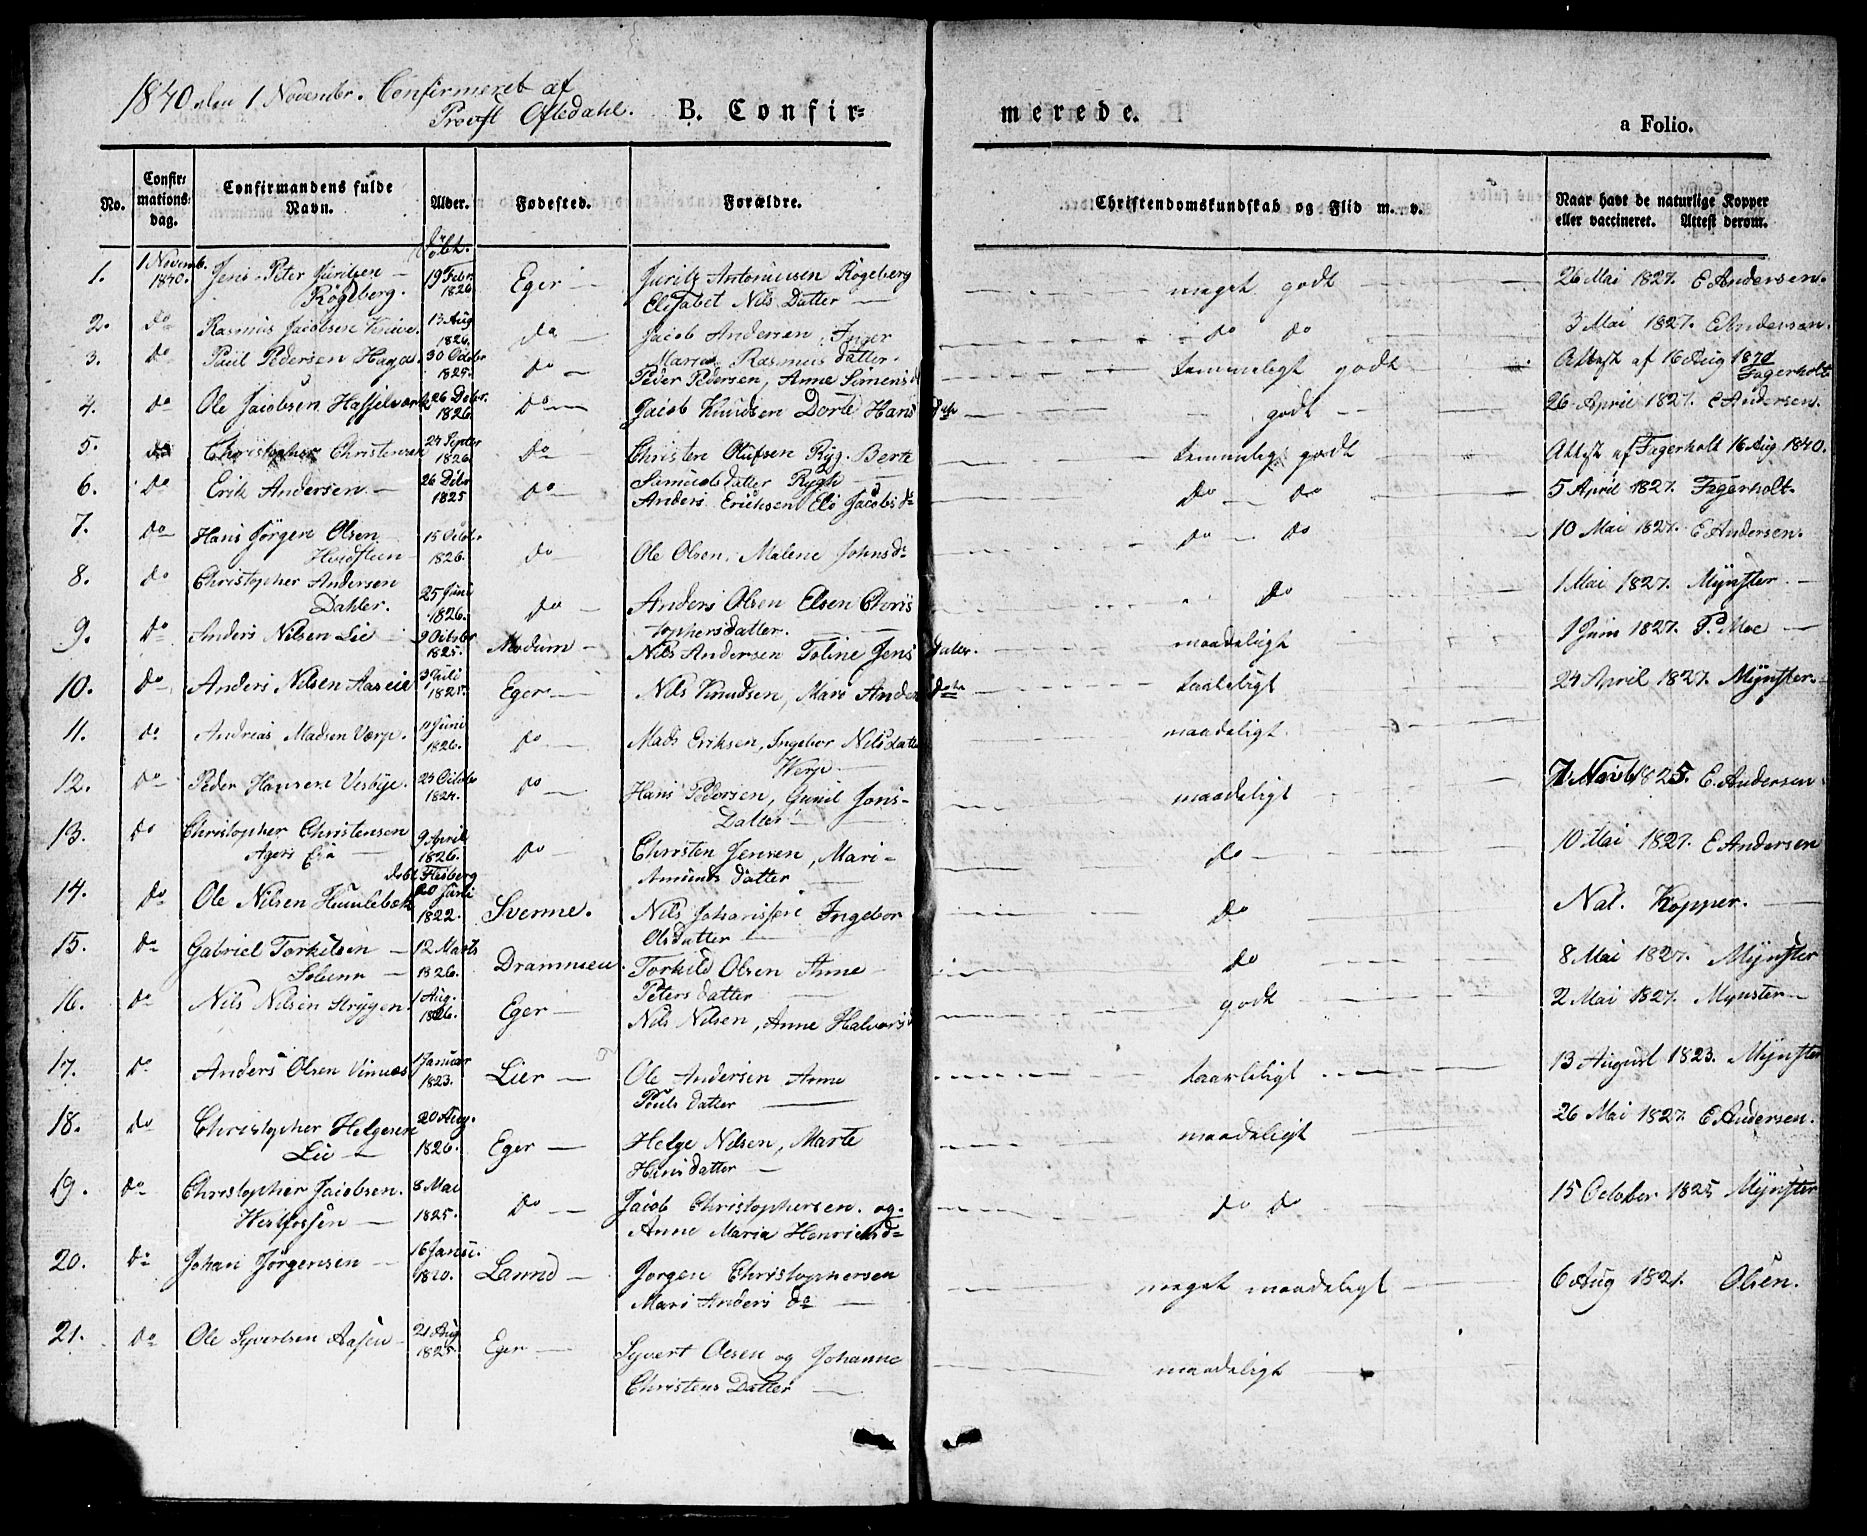 1840 den 1 Novembr. Confirmeret af
Provst Oftedahl.
B. Confir=
merede.
a Folio.
No.
Confir=
mations=
dag.
Confirmandens fulde
Navn.
Alder.
Fødested.
Forældre.
Christendomskundskab og Flid m. v.
Naar havt de naturlige Kopper
eller vaccineret. Attest derom.
Døbt.
1. 1 Novemb. 1840. Jens Peter Juritsen Røgeberg. 19 Febr. 1826 Eger Juritz Antoniusen Røgeberg Elisabet Nils Datter meget godt 26 Mai 1827. E Andersen.
2. do Rasmus Jacobsen Knive. 13 Aug 1826. do Jacob Andersen, Inger Maria Rasmusdatter. do do 3 Mai 1827. E Andersen.
3. do Paul Pedersen Haga 30 Octobr 1825. do Peder Pedersen, Anne Simensd temmeligt godt Attest af 16 Aug Fagerholt
4. do Ole Jacobsen Hasselvæk 26 Debr. 1826. do Jacob Knudsen Dorte Hans dtr godt 26 April 1827. E Andersen.
5. do Christopher Christensen 24 Septer 1826. do Christen Olufsen Ryg. Berte Samuelsdatter Rygh temmelig godt Attest af Fagerholt 16 Aug 1840.
6. do Erik Andersen 26 Debr 1825 do Anders Eriksen Else Jacobsdr do do 5 April 1827. Fagerholt.
7. do Hans Jørgen Olsen 15 Octobr 1826. do Ole Olsen, Malene Johnsdr do do 10 Mai 1827. E Andersen.
8. do Christopher Andersen Dahler. 25 Juni 1826. do Anders Olsen Elsen Christophersdatter. do 1 Mai 1827. Mynster.
9. do Anders Nilsen Lie 9 Octobr 1825. Modum Nils Andersen Toline Jens Datter. maadeligt 1 Juni 1827. P. Moe
10. do Anders Nilsen Aaseie 3 Juli 1825. Eger Nils Knudsen, Mari Anders Datr taaleligt 24 April 1827. Mynster.
11. do Andreas Madsen Værp. 11 Juni 1826. do Mads Eriksen, Ingebor Nilsdatter Werp maadeligt.
12. do Peder Hansen Vesbye. 24 Octobr 1824. do Hans Pedersen, Gunil Jons-Datter maadeligt 1825. E. Andersen
13. do Christopher Christensen Agers Eie 9 April 1826. do Christen Jensen, Mari Amundsdatter do 10 Mai 1827. E Andersen
14. do Ole Nilsen Humlebæk døbt Flesberg 20 Juni 1822. Svenne. Nils Johannsen Ingebor Olsdatter do Nat. Kopper.
15. do Gabriel Torkilsen Solum 12 Marts 1826. Drammen. Torkild Olsen Anne Petersdatter do 8 Mai 1827. Mynster
16. do Nils Nilsen Strygen. 1 Aug. 1826. Eger Nils Nilsen, Anne Halvorsd godt 2 Mai 1827. Mynster
17. do Anders Olsen Vinnes 1 Januar 1823. Lier Ole Andersen Anne Pouls datter taaleligt 13 August 1823. Mynster
18. do Christopher Helgesen Lie 20 Aug. 1826. Eger Helge Nilsen, Marte Hansdatter maadeligt 26 Mai 1827. E Andersen.
19. do Christopher Jacobsen. Westfossen 8 Mai 1825. do Jacob Christophersen. og. Anne Maria Henriksdr do do 15 October 1825 Mynster
20. do Johan Jørgensen 16 Janu. 1820. Land Jørgen Christophersen Mari Anders dr meget maadeligt 6 Aug 1821. Olsen.
21. do Ole Syvertsen Aasen 21 Aug 1825. Eger Syvert Olsen og Johanne Christens Datter maadeligt